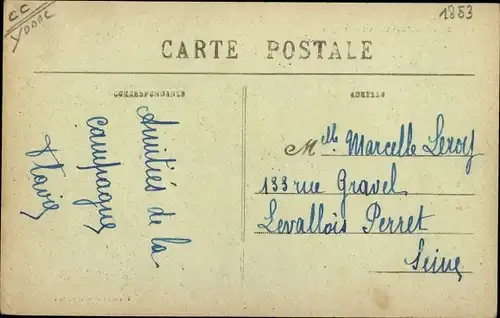 1853
CARTE POSTALE
CORRESPONDANCE
ADRESSE
Amitiés de la
campagne
Mlle Marcelle Leroy
133 rue Gravel
Levallois Perret
Seine